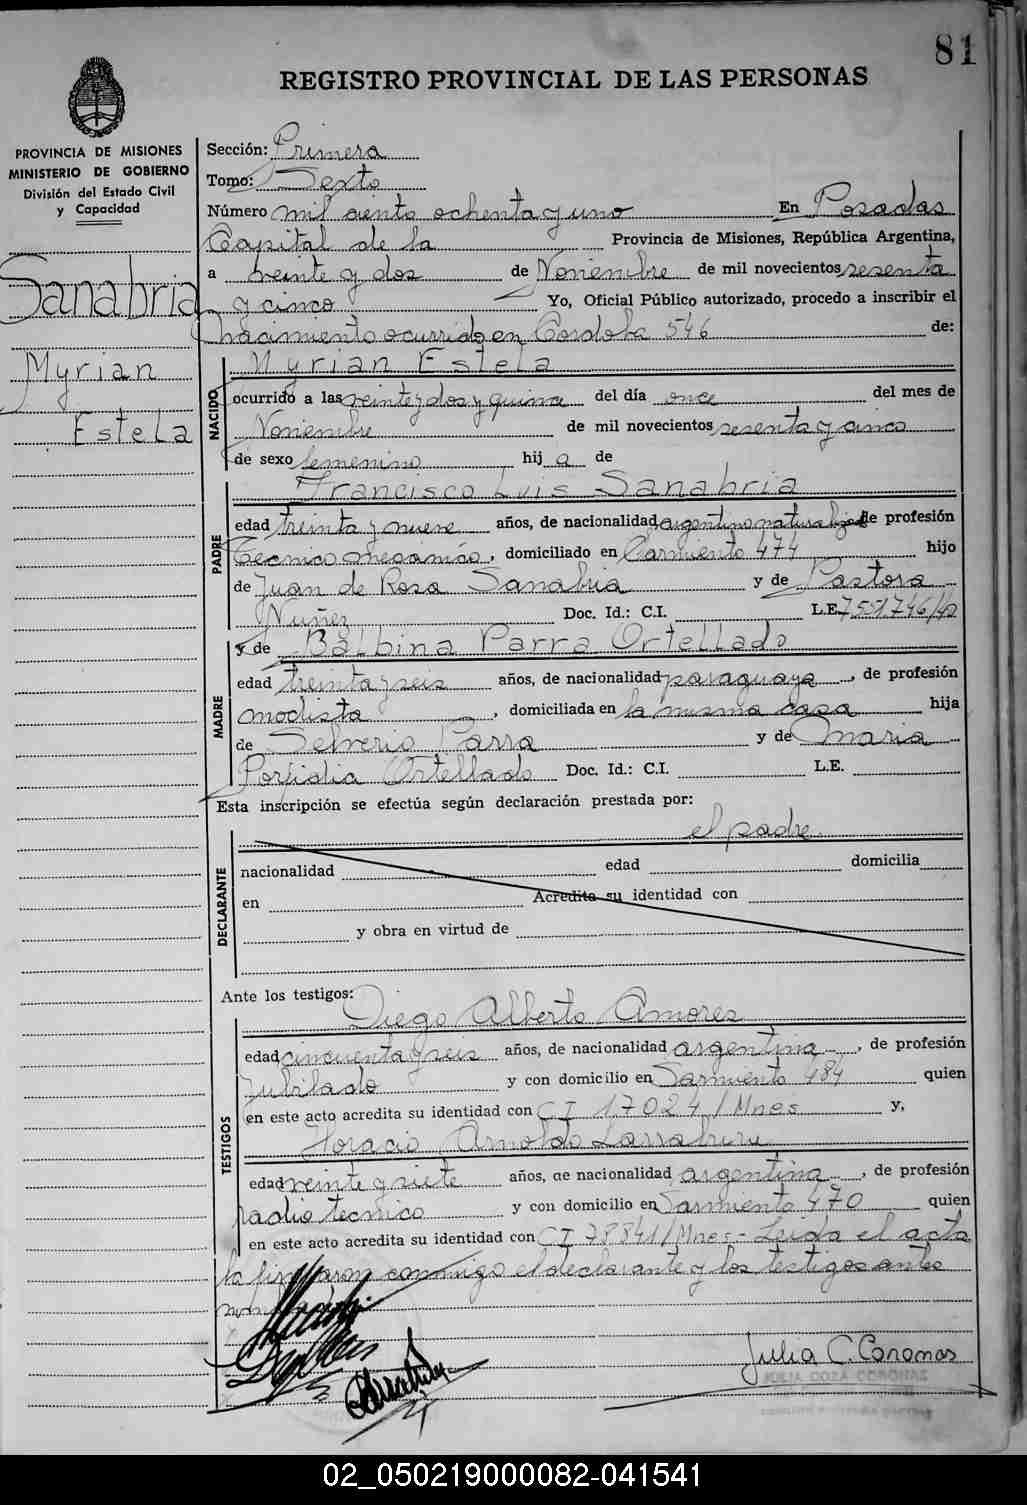 81
REGISTRO PROVINCIAL DE LAS PERSONAS
PROVINCIA DE MISIONES
MINISTERIO DE GOBIERNO
División del Estado Civil
y Capacidad
Sanabria
Myrian
Estela
Sección: Primera
Tomo: Sexto
Número mil ciento ochenta y uno En Posadas
Capital de la Provincia de Misiones, República Argentina,
a veinte y dos de Noviembre de mil novecientos sesenta
y cinco Yo, Oficial Público autorizado, procedo a inscribir el
nacimiento ocurrido en Cordoba 546 de:
NACIDO
Myrian Estela
ocurrido a las veinte y dos y quince del día once del mes de
Noviembre de mil novecientos sesenta y cinco
de sexo femenino hij a de
PADRE
Francisco Luis Sanabria
edad treinta y nueve años, de nacionalidad argentino naturalizado de profesión
Tecnico mecanico, domiciliado en Sarmiento 474 hijo
de Juan de Rosa Sanabria y de Pastora
Nuñez Doc. Id.: C.I. L.E. 7551746
MADRE
y de Balbina Parra Ortellado
edad treinta y seis años, de nacionalidad paraguaya, de profesión
modista, domiciliada en la misma casa hija
de Selverio Parra y de Maria
Porfidia Ortellado Doc. Id.: C.I. L.E.
Esta inscripción se efectúa según declaración prestada por:
el padre
DECLARANTE
nacionalidad edad domicilia
en Acredita su identidad con
y obra en virtud de
Ante los testigos:
TESTIGOS
Diego Alberto Amores
edad cincuenta y seis años, de nacionalidad argentina, de profesión
jubilado y con domicilio en Sarmiento 484 quien
en este acto acredita su identidad con CI 17024/Mnes y,
Horacio Arnoldo
edad veinte y siete años, de nacionalidad argentina, de profesión
radio tecnico y con domicilio en Sarmiento 470 quien
en este acto acredita su identidad con CI 78841/Mnes- Leida el acta
la firmaron conmigo el declarante y los testigos antes
Julia C. Coronas
JULIA COZA CORONAS
02_050219000082-041541